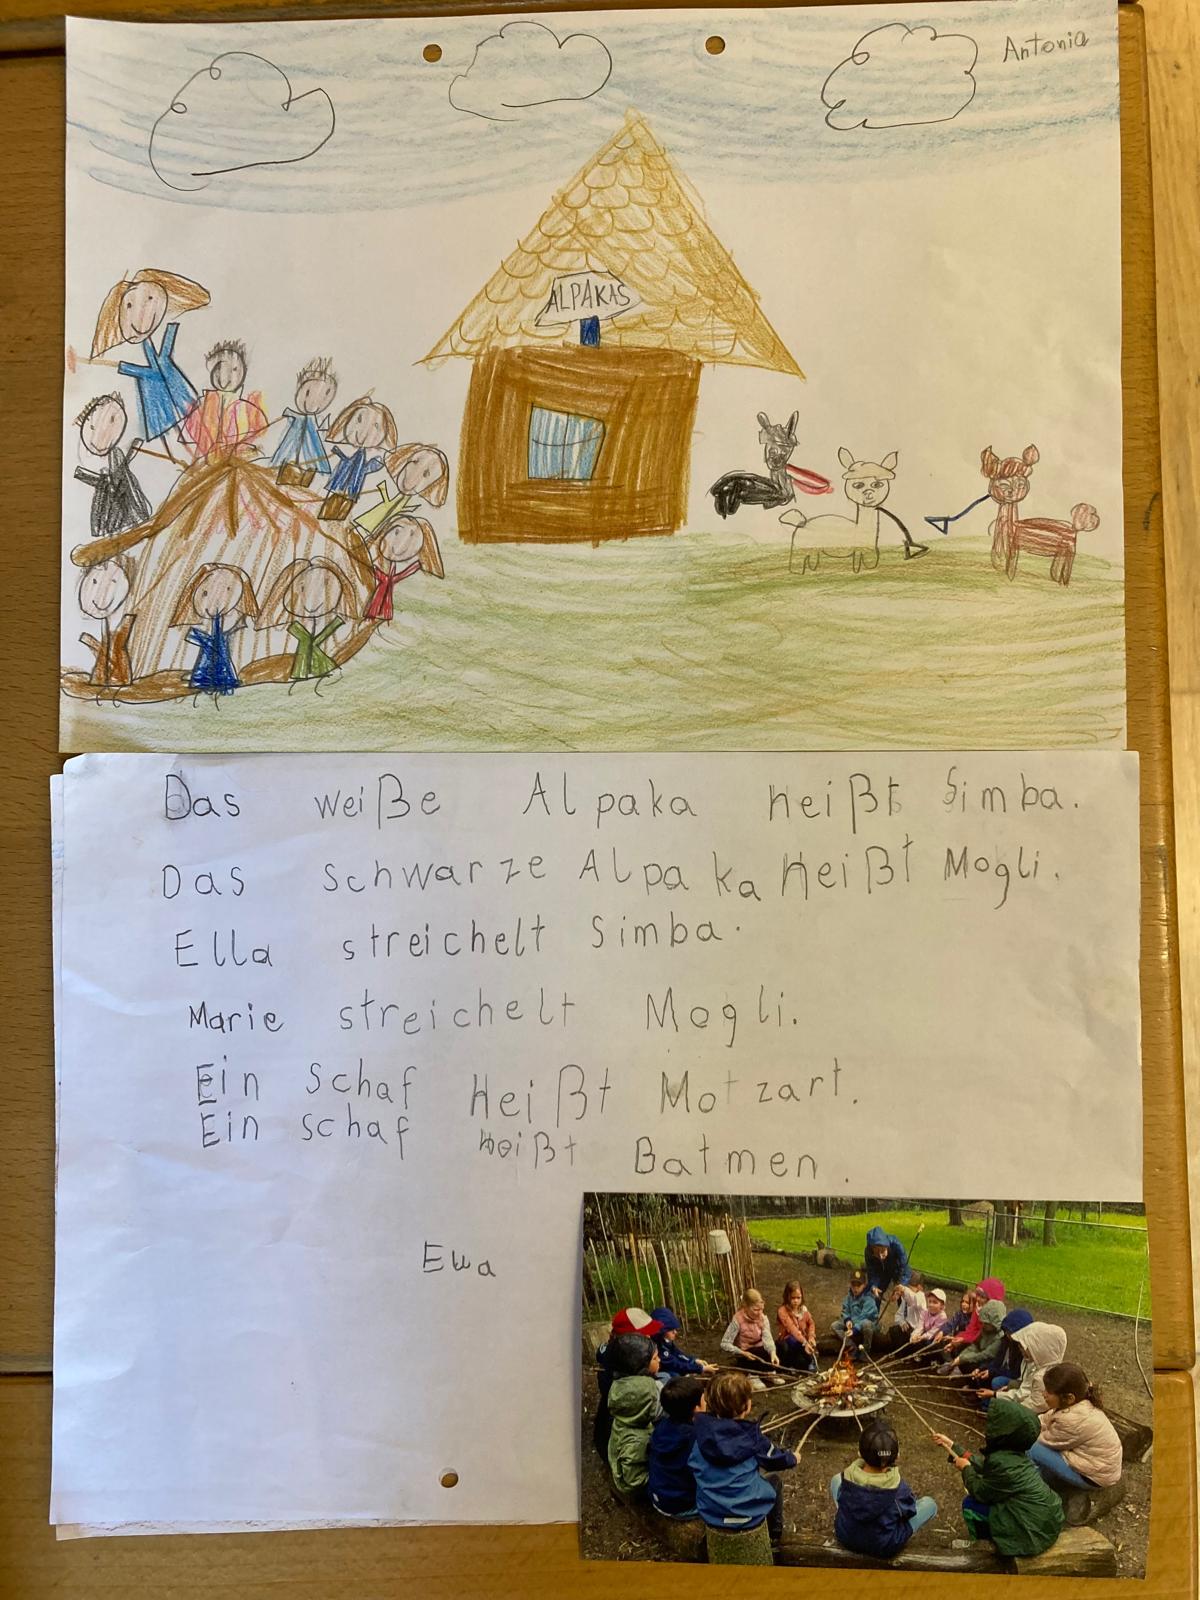 Antonia
ALPAKAS
Das weiße Alpaka heißt Simba.
Das schwarze Alpaka heißt Mogli.
Ella streichelt Simba.
Marie streichelt Mogli.
Ein Schaf heißt Motzart.
Ein schaf heißt Batmen.
Ella